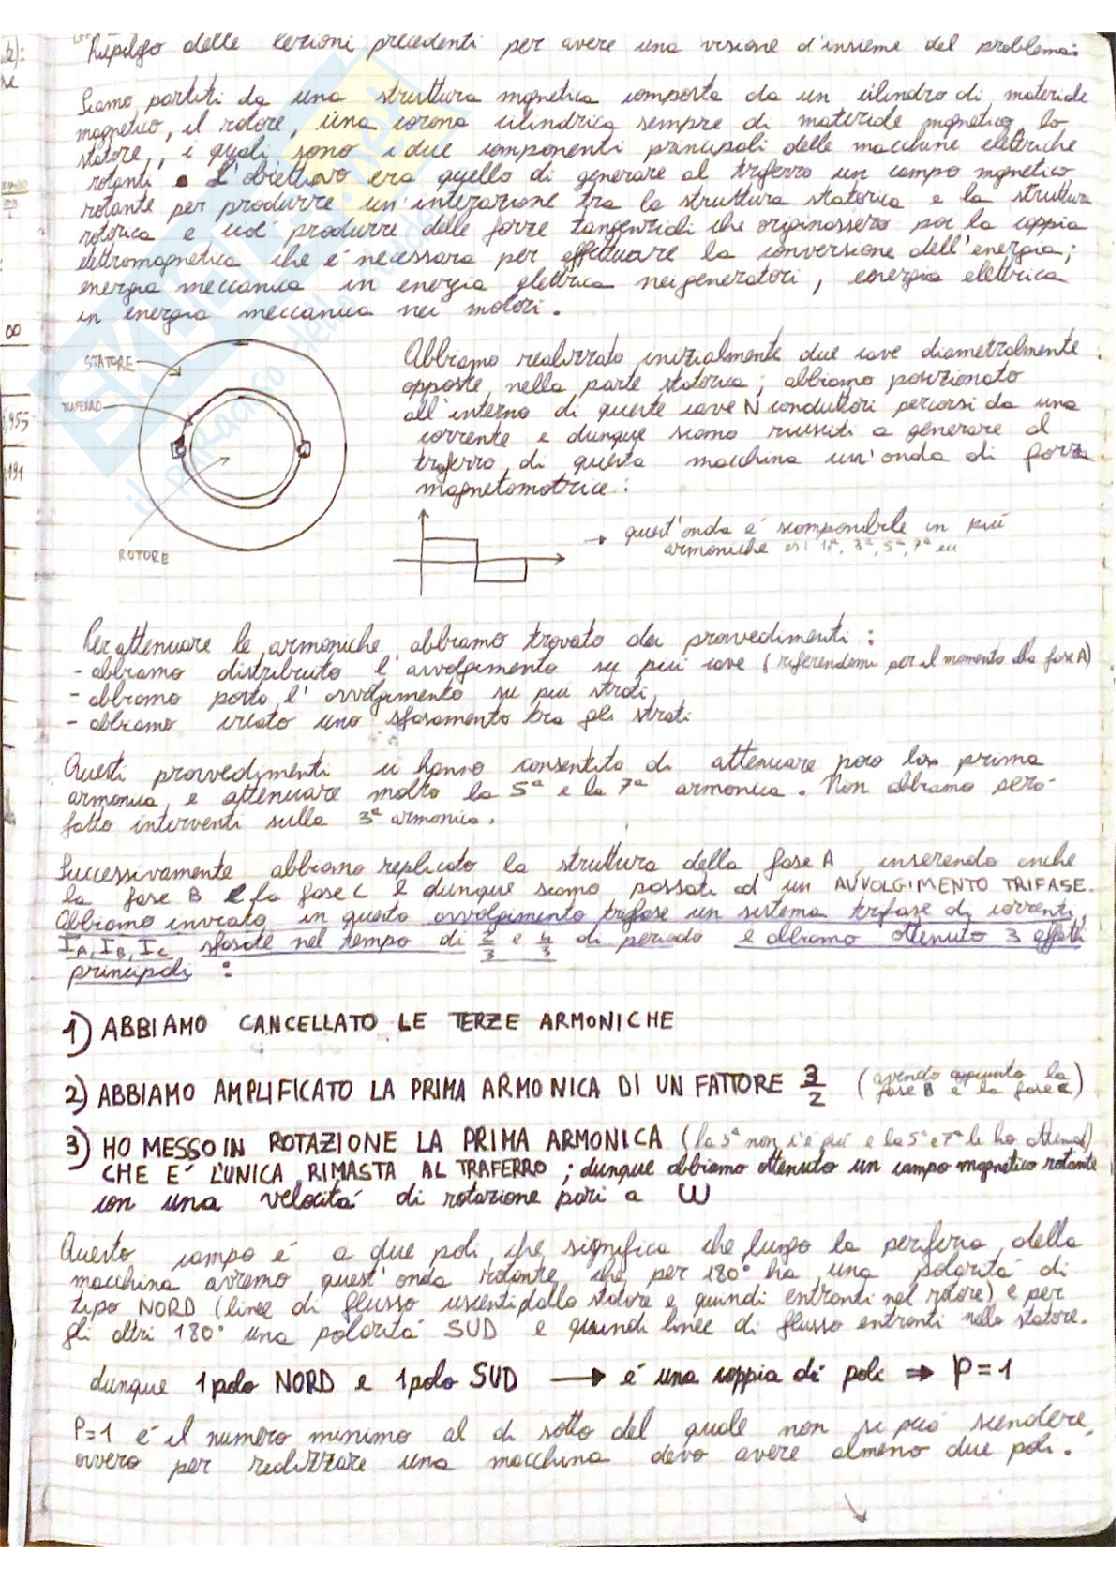 Riepilogo delle lezioni precedenti per avere una visione d'insieme del problema:
Siamo partiti da una struttura magnetica composta da un cilindro di materiale
magnetico, il rotore, una corona cilindrica sempre di materiale magnetico lo
statore, i quali sono i due componenti principali delle macchine elettriche
rotanti. L'obiettivo era quello di generare al traferro un campo magnetico
rotante per produrre un'interazione tra la struttura statorica e la struttura
rotorica e così produrre delle forze tangenziali che originassero poi la coppia
elettromagnetica che è necessaria per effettuare la conversione dell'energia;
energia meccanica in energia elettrica nei generatori, energia elettrica
in energia meccanica nei motori.
STATORE
TRAFERRO
ROTORE
Abbiamo realizzato inizialmente due cave diametralmente
opposte nella parte statorica; abbiamo posizionato
all'interno di queste cave N conduttori percorsi da una
corrente e dunque siamo riusciti a generare al
traferro di questa macchina un'onda di forza
magnetomotrice:
quest'onda è scomponibile in più
armoniche 1ª, 3ª, 5ª, 7ª ecc
Per attenuare le armoniche abbiamo trovato dei provvedimenti:
- abbiamo distribuito l'avvolgimento su più cave (riferendomi per il momento alla fase A)
- abbiamo posto l'avvolgimento su più strati,
- abbiamo creato uno sfasamento tra gli strati
Questi provvedimenti ci hanno consentito di attenuare poco la prima
armonica e attenuare molto la 5ª e la 7ª armonica. Non abbiamo però
fatto interventi sulla 3ª armonica.
Successivamente abbiamo replicato la struttura della fase A inserendo anche
la fase B e la fase C e dunque siamo passati ad un AVVOLGIMENTO TRIFASE.
Abbiamo inviato in questo avvolgimento trifase un sistema trifase di correnti,
IA, IB, IC sfasate nel tempo di 2/3 e 4/3 di periodo e abbiamo ottenuto 3 effetti
principali :
1) ABBIAMO CANCELLATO LE TERZE ARMONICHE
2) ABBIAMO AMPLIFICATO LA PRIMA ARMONICA DI UN FATTORE 3/2 (avendo aggiunto la
fase B e la fase C)
3) HO MESSO IN ROTAZIONE LA PRIMA ARMONICA (la 3ª non c'è più e la 5ª e 7ª le ho attenuate)
CHE E' L'UNICA RIMASTA AL TRAFERRO ; dunque abbiamo ottenuto un campo magnetico rotante
con una velocità di rotazione pari a ω
Questo campo è a due poli, che significa che lungo la periferia della
macchina avremo quest'onda rotante che per 180° ha una polarità di
tipo NORD (linee di flusso uscenti dallo statore e quindi entranti nel rotore) e per
gli altri 180° una polarità SUD e quindi linee di flusso entranti nello statore.
dunque 1 polo NORD e 1 polo SUD → è una coppia di poli ⇒ P=1
P=1 è il numero minimo al di sotto del quale non si può scendere
ovvero per realizzare una macchina devo avere almeno due poli.